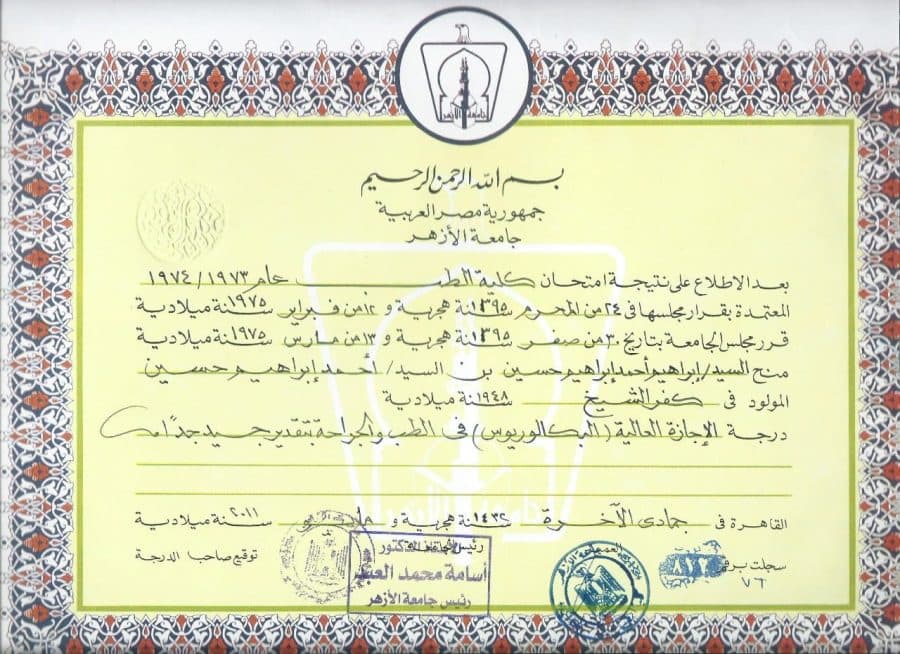 جامعة الأزهر
بسم الله الرحمن الرحيم
جمهورية مصر العربية
جامعة الأزهر
بعد الاطلاع على نتيجة امتحان كلية الطب عام ١٩٧٣/١٩٧٤
المعتمدة بقرار مجلسها فى ٢٤ من المحرم سنة ١٣٩٥ هجرية و من فبراير سنة ١٩٧٥ ميلادية
قرر مجلس الجامعة بتاريخ ٣٠ من صفر سنة ١٣٩٥ هجرية و ١٣ من مارس سنة ١٩٧٥ ميلادية
منح السيد/ إبراهيم أحمد إبراهيم حسين بن السيد/ أحمد إبراهيم حسين
المولود فى كفر الشيخ سنة ١٩٤٨ ميلادية
درجة الإجازة العالية (البكالوريوس) فى الطب والجراحة بتقدير جيد جدًا
القاهرة فى جمادى الآخرة سنة ١٤٣٢ هجرية و سنة ٢٠١١ ميلادية
توقيع صاحب الدرجة
رئيس الجامعة
أسامة محمد العبد
رئيس جامعة الأزهر
سجلت برقم
٧٦